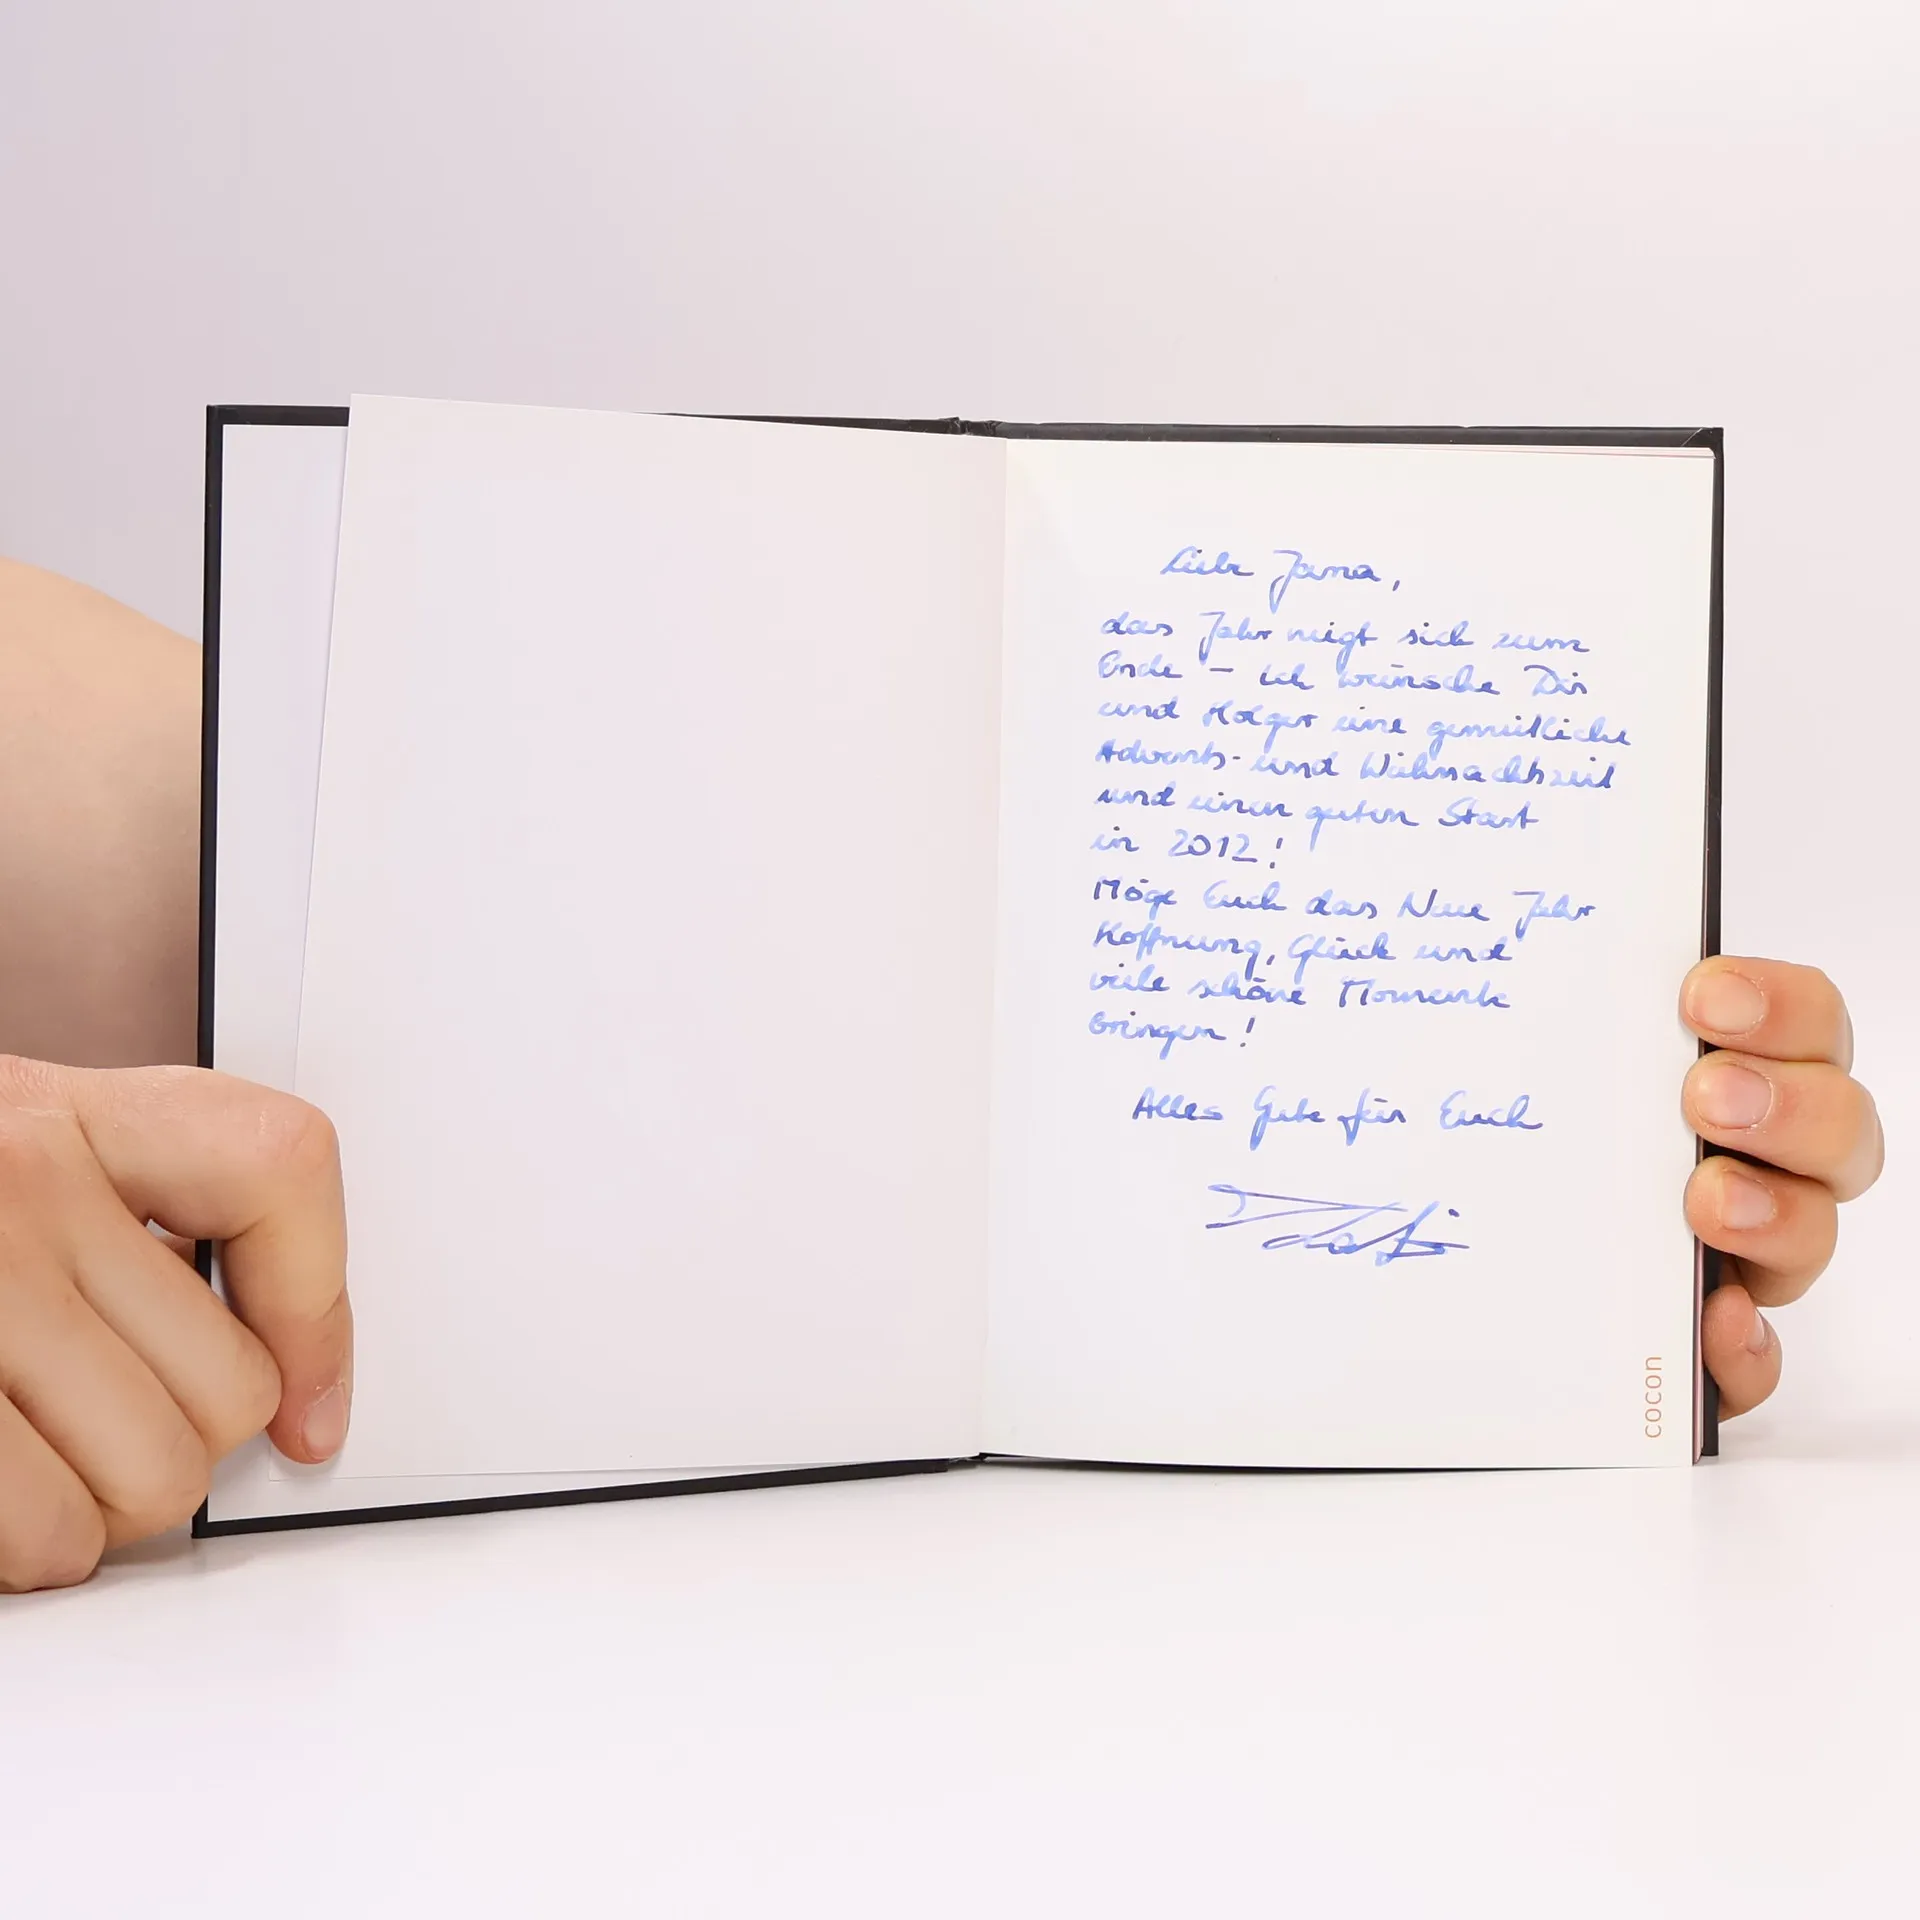 Liebe Jana,
das Jahr neigt sich zum
Ende – ich wünsche Dir
und Holger eine gemütliche
Advents- und Weihnachtszeit
und einen guten Start
in 2012!
Möge Euch das Neue Jahr
Hoffnung, Glück und
viele schöne Momente
bringen!
Alles Gute für Euch
cocon